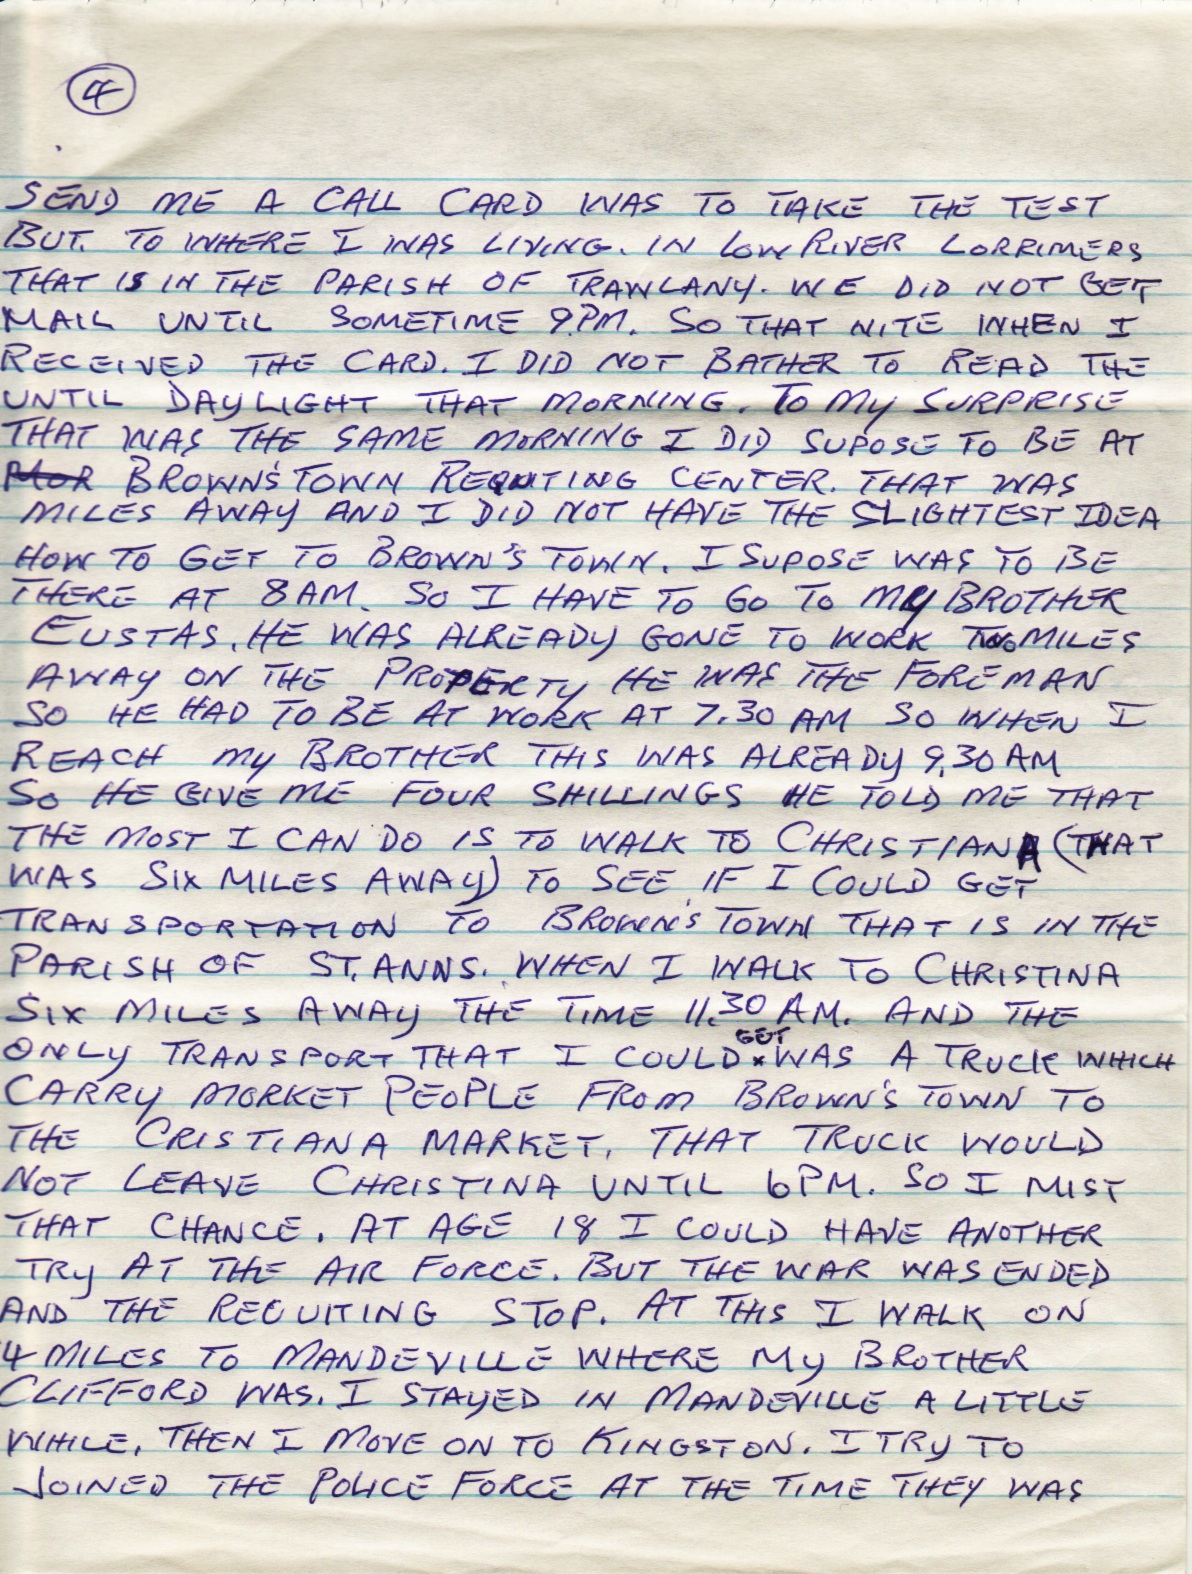 4
SEND ME A CALL CARD WAS TO TAKE THE TEST
BUT. TO WHERE I WAS LIVING. IN LOW RIVER LORRIMERS
THAT IS IN THE PARISH OF TRAWLANY. WE DID NOT GET
MAIL UNTIL SOMETIME 9.PM. SO THAT NITE WHEN I
RECEIVED THE CARD. I DID NOT BATHER TO READ THE
UNTIL DAYLIGHT THAT MORNING. TO MY SURPRISE
THAT WAS THE SAME MORNING I DID SUPOSE TO BE AT
BROWN'S TOWN REQUTING CENTER. THAT WAS
MILES AWAY AND I DID NOT HAVE THE SLIGHTEST IDEA
HOW TO GET TO BROWN'S TOWN. I SUPOSE WAS TO BE
THERE AT 8 AM. SO I HAVE TO GO TO MY BROTHER
EUSTAS. HE WAS ALREADY GONE TO WORK TWO MILES
AWAY ON THE PROPERTY HE WAS THE FOREMAN
SO HE HAD TO BE AT WORK AT 7.30 AM SO WHEN I
REACH MY BROTHER THIS WAS ALREADY 9.30 AM
SO HE GIVE ME FOUR SHILLINGS HE TOLD ME THAT
THE MOST I CAN DO IS TO WALK TO CHRISTIANA (THAT
WAS SIX MILES AWAY) TO SEE IF I COULD GET
TRANSPORTATION TO BROWN'S TOWN THAT IS IN THE
PARISH OF ST. ANNS. WHEN I WALK TO CHRISTINA
SIX MILES AWAY THE TIME 11.30 AM. AND THE
ONLY TRANSPORT THAT I COULD GET WAS A TRUCK WHICH
CARRY MORKET PEOPLE FROM BROWN'S TOWN TO
THE CRISTIANA MARKET. THAT TRUCK WOULD
NOT LEAVE CHRISTINA UNTIL 6PM. SO I MIST
THAT CHANCE. AT AGE 18 I COULD HAVE ANOTHER
TRY AT THE AIR FORCE. BUT THE WAR WAS ENDED
AND THE RECUITING STOP. AT THIS I WALK ON
4 MILES TO MANDEVILLE WHERE MY BROTHER
CLIFFORD WAS. I STAYED IN MANDEVILLE A LITTLE
WHILE. THEN I MOVE ON TO KINGSTON. I TRY TO
JOINED THE POLICE FORCE AT THE TIME THEY WAS